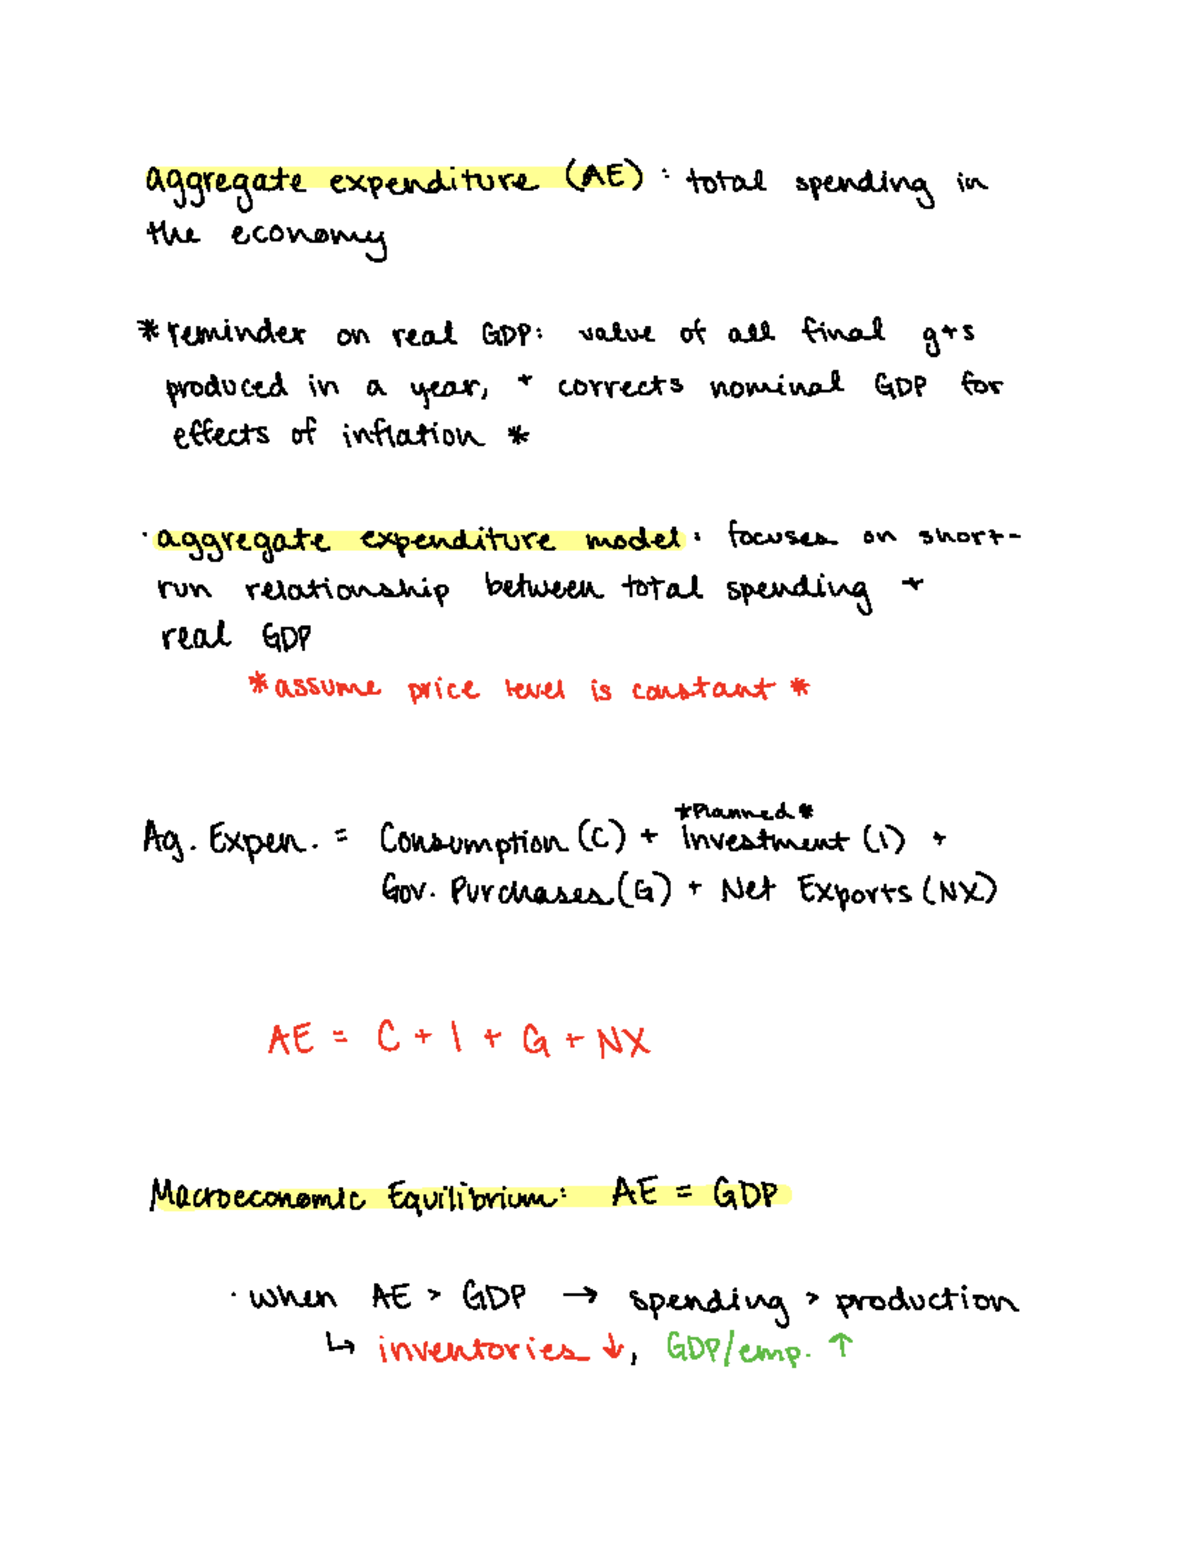 aggregate expenditure (AE): total spending in
the economy
*reminder on real GDP: value of all final g+s
produced in a year, + corrects nominal GDP for
effects of inflation *
· aggregate expenditure model: focuses on short-
run relationship between total spending +
real GDP
*assume price level is constant *
*Planned*
Ag. Expen. = Consumption (C) + Investment (I) +
Gov. Purchases (G) + Net Exports (NX)
AE = C + I + G + NX
Macroeconomic Equilibrium: AE = GDP
· when AE > GDP → spending > production
↳ inventories ↓, GDP/emp. ↑